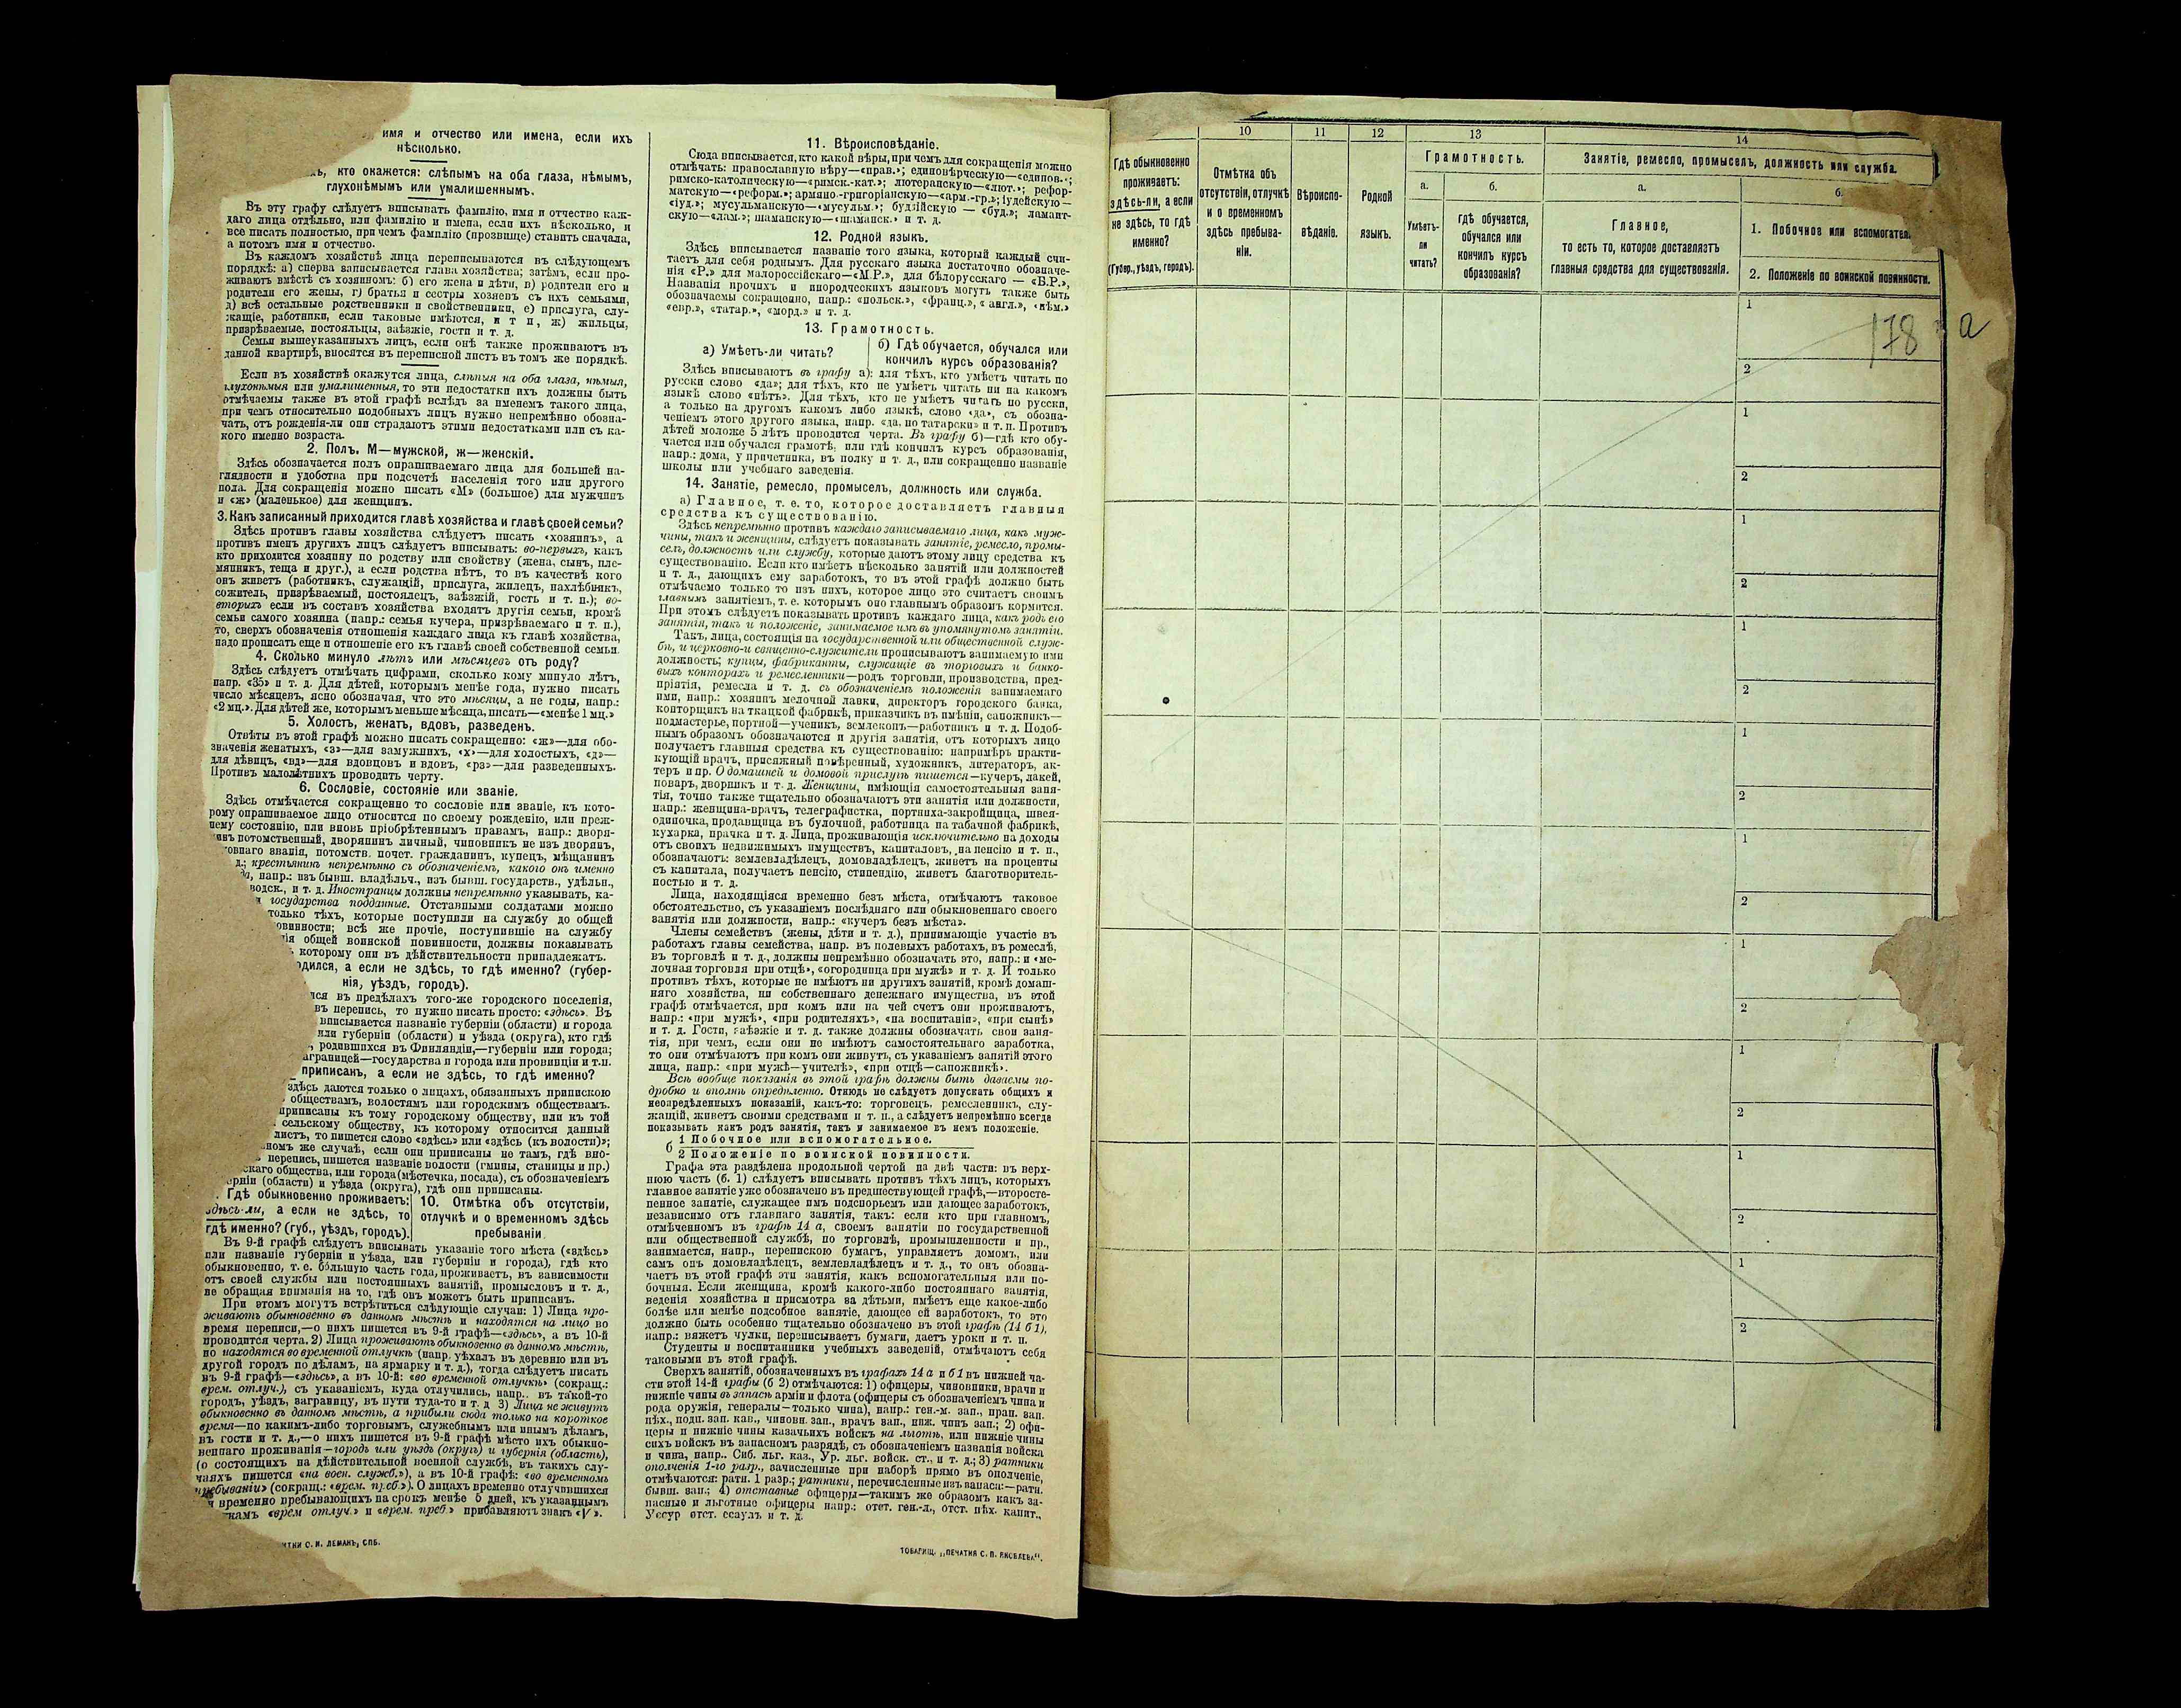 имя и отчество или имена, если ихъ
нѣсколько.
кто окажется: слѣпымъ на оба глаза, нѣмымъ,
глухонѣмымъ или умалишеннымъ.
Въ эту графу слѣдуетъ вписывать фамилію, имя и отчество каж-
даго лица отдѣльно, или фамилію и имена, если ихъ нѣсколько, и
все писать полностью, при чемъ фамилію (прозвище) ставить сначала,
а потомъ имя и отчество.
Въ каждомъ хозяйствѣ лица переписываются въ слѣдующемъ
порядкѣ: а) сперва записывается глава хозяйства; затѣмъ, если про-
живаютъ вмѣстѣ съ хозяиномъ: б) его жена и дѣти, в) родители его и
родители его жены, г) братья и сестры хозяевъ съ ихъ семьями,
д) всѣ остальные родственники и свойственники, е) прислуга, слу-
жащіе, работники, если таковые имѣются, и т п, ж) жильцы,
призрѣваемые, постояльцы, заѣзжіе, гости и т. д.
Семьи вышеуказанныхъ лицъ, если онѣ также проживаютъ въ
данной квартирѣ, вносятся въ переписной листъ въ томъ же порядкѣ.
Если въ хозяйствѣ окажутся лица, слѣпыя на оба глаза, нѣмыя,
глухонѣмыя или умалишенныя, то эти недостатки ихъ должны быть
отмѣчаемы также въ этой графѣ вслѣдъ за именемъ такого лица,
при чемъ относительно подобныхъ лицъ нужно непремѣнно обозна-
чать, отъ рожденія-ли они страдаютъ этими недостатками или съ ка-
кого именно возраста.
2. Полъ. М—мужской, ж—женскій.
Здѣсь обозначается полъ опрашиваемаго лица для большей на-
глядности и удобства при подсчетѣ населенія того или другого
пола. Для сокращенія можно писать «М» (большое) для мужчинъ
и «ж» (маленькое) для женщинъ.
3. Какъ записанный приходится главѣ хозяйства и главѣ своей семьи?
Здѣсь противъ главы хозяйства слѣдуетъ писать «хозяинъ», а
противъ именъ другихъ лицъ слѣдуетъ вписывать: во-первыхъ, какъ
кто приходится хозяину по родству или свойству (жена, сынъ, пле-
мянникъ, теща и друг.), а если родства нѣтъ, то въ качествѣ кого
онъ живетъ (работникъ, служащій, прислуга, жилецъ, нахлѣбникъ,
сожитель, призрѣваемый, постоялецъ, заѣзжій, гость и т. п.); во-
вторыхъ если въ составъ хозяйства входятъ другія семьи, кромѣ
семьи самого хозяина (напр.: семья кучера, призрѣваемаго и т. п.),
то, сверхъ обозначенія отношенія каждаго лица къ главѣ хозяйства,
надо прописать еще и отношеніе его къ главѣ своей собственной семьи.
4. Сколько минуло лѣтъ или мѣсяцевъ отъ роду?
Здѣсь слѣдуетъ отмѣчать цифрами, сколько кому минуло лѣтъ,
напр. «35» и т. д. Для дѣтей, которымъ менѣе года, нужно писать
число мѣсяцевъ, ясно обозначая, что это мѣсяцы, а не годы, напр.:
«2 мц.». Для дѣтей же, которымъ меньше мѣсяца, писать—«менѣе 1 мц.»
5. Холостъ, женатъ, вдовъ, разведенъ.
Отвѣты въ этой графѣ можно писать сокращенно: «ж»—для обо-
значенія женатыхъ, «з»—для замужнихъ, «х»—для холостыхъ, «д»—
для дѣвицъ, «вд»—для вдовцовъ и вдовъ, «рз»—для разведенныхъ.
Противъ малолѣтнихъ проводить черту.
6. Сословіе, состояніе или званіе.
Здѣсь отмѣчается сокращенно то сословіе или званіе, къ кото-
рому опрашиваемое лицо относится по своему рожденію, или преж-
нему состоянію, или вновь пріобрѣтеннымъ правамъ, напр.: дворя-
потомственный, дворянинъ личный, чиновникъ не изъ дворянъ,
званія, потомств. почет. гражданинъ, купецъ, мѣщанинъ
д.; крестьянинъ непремѣнно съ обозначеніемъ, какого онъ именно
напр.: изъ бывш. владѣльч., изъ бывш. государств., удѣльн.,
водск., и т. д. Иностранцы должны непремѣнно указывать, ка-
государства подданные. Отставными солдатами можно
только тѣхъ, которые поступили на службу до общей
повинности; всѣ же прочіе, поступившіе на службу
общей воинской повинности, должны показывать
которому они въ дѣйствительности принадлежатъ.
родился, а если не здѣсь, то гдѣ именно? (губер-
нія, уѣздъ, городъ).
въ предѣлахъ того-же городского поселенія,
въ перепись, то нужно писать просто: «здѣсь». Въ
вписывается названіе губерніи (области) и города
или губерніи (области) и уѣзда (округа), кто гдѣ
родившихся въ Финляндіи,—губерніи или города;
заграницей—государства и города или провинціи и т.п.
приписанъ, а если не здѣсь, то гдѣ именно?
здѣсь даются только о лицахъ, обязанныхъ припискою
обществамъ, волостямъ или городскимъ обществамъ.
приписаны къ тому городскому обществу, или къ той
сельскому обществу, къ которому относится данный
листъ, то пишется слово «здѣсь» или «здѣсь (къ волости)»;
же случаѣ, если они приписаны не тамъ, гдѣ вно-
перепись, пишется названіе волости (гмины, станицы и пр.)
общества, или города (мѣстечка, посада), съ обозначеніемъ
(области) и уѣзда (округа), гдѣ они приписаны.
Гдѣ обыкновенно проживаетъ:
здѣсь-ли, а если не здѣсь, то
гдѣ именно? (губ., уѣздъ, городъ).
10. Отмѣтка объ отсутствіи,
отлучкѣ и о временномъ здѣсь
пребываніи
Въ 9-й графѣ слѣдуетъ вписывать указаніе того мѣста («здѣсь»
или названіе губерніи и уѣзда, или губерніи и города), гдѣ кто
обыкновенно, т. е. большую часть года, проживаетъ, въ зависимости
отъ своей службы или постоянныхъ занятій, промысловъ и т. д.,
не обращая вниманія на то, гдѣ онъ можетъ быть приписанъ.
При этомъ могутъ встрѣтиться слѣдующіе случаи: 1) Лица про-
живаютъ обыкновенно въ данномъ мѣстѣ и находятся на лицо во
время переписи,—о нихъ пишется въ 9-й графѣ—«здѣсь», а въ 10-й
проводится черта. 2) Лица проживаютъ обыкновенно въ данномъ мѣстѣ,
но находятся во временной отлучкѣ (напр. уѣхалъ въ деревню или въ
другой городъ по дѣламъ, на ярмарку и т. д.), тогда слѣдуетъ писать
въ 9-й графѣ—«здѣсь», а въ 10-й: «во временной отлучкѣ» (сокращ.:
врем. отлуч.), съ указаніемъ, куда отлучились, напр.. въ такой-то
городъ, уѣздъ, заграницу, въ пути туда-то и т. д 3) Лица не живутъ
обыкновенно въ данномъ мѣстѣ, а прибыли сюда только на короткое
время—по какимъ-либо торговымъ, служебнымъ или инымъ дѣламъ,
въ гости и т. д.,—о нихъ пишется въ 9-й графѣ мѣсто ихъ обыкно-
веннаго проживанія—городъ или уѣздъ (округъ) и губернія (область),
(о состоящихъ на дѣйствительной военной службѣ, въ такихъ слу-
чаяхъ пишется «на воен. служб.»), а въ 10-й графѣ: «во временномъ
пребываніи» (сокращ.: «врем. преб.»). О лицахъ временно отлучившихся
временно пребывающихъ на срокъ менѣе 5 дней, къ указаннымъ
«врем отлуч.» и «врем. преб.» прибавляютъ знакъ «V».
О. И. ЛЕМАНЪ, СПБ.
11. Вѣроисповѣданіе.
Сюда вписывается, кто какой вѣры, при чемъ для сокращенія можно
отмѣчать: православную вѣру—«прав.»; единовѣрческую—«единов.»;
римско-католическую—«римск.-кат.»; лютеранскую—«лют.»; рефор-
матскую—«реформ.»; армяно-григоріанскую—«арм.-гр.»; іудейскую—
«іуд.»; мусульманскую—«мусульм.»; буддійскую — «буд.»; ламаит-
скую—«лам.»; шаманскую—«шаманск.» и т. д.
12. Родной языкъ.
Здѣсь вписывается названіе того языка, который каждый счи-
таетъ для себя роднымъ. Для русскаго языка достаточно обозначе-
нія «Р.» для малороссійскаго—«М.Р.», для бѣлорусскаго — «Б.Р.»,
Названія прочихъ и инородческихъ языковъ могутъ также быть
обозначаемы сокращенно, напр.: «польск.», «франц.», « англ.», «нѣм.»
«евр.», «татар.», «морд.» и т. д.
13. Грамотность.
а) Умѣетъ-ли читать?
б) Гдѣ обучается, обучался или
кончилъ курсъ образованія?
Здѣсь вписываютъ въ графу а): для тѣхъ, кто умѣетъ читать по
русски слово «да»; для тѣхъ, кто не умѣетъ читать ни на какомъ
языкѣ слово «нѣтъ». Для тѣхъ, кто не умѣетъ читать по русски,
а только на другомъ какомъ либо языкѣ, слово «да», съ обозна-
ченіемъ этого другого языка, напр. «да, по татарски» и т. п. Противъ
дѣтей моложе 5 лѣтъ проводится черта. Въ графу б)—гдѣ кто обу-
чается или обучался грамотѣ, или гдѣ кончилъ курсъ образованія,
напр.: дома, у причетника, въ полку и т. д., или сокращенно названіе
школы или учебнаго заведенія.
14. Занятіе, ремесло, промыселъ, должность или служба.
а) Главное, т. е. то, которое доставляетъ главныя
средства къ существованію.
Здѣсь непремѣнно противъ каждаго записываемаго лица, какъ муж-
чины, такъ и женщины, слѣдуетъ показывать занятіе, ремесло, промы-
селъ, должность или службу, которые даютъ этому лицу средства къ
существованію. Если кто имѣетъ нѣсколько занятій или должностей
и т. д., дающихъ ему заработокъ, то въ этой графѣ должно быть
отмѣчаемо только то изъ нихъ, которое лицо это считаетъ своимъ
главнымъ занятіемъ, т. е. которымъ оно главнымъ образомъ кормится.
При этомъ слѣдуетъ показывать противъ каждаго лица, какъ родъ его
занятія, такъ и положеніе, занимаемое имъ въ упомянутомъ занятіи.
Такъ, лица, состоящія на государственной или общественной служ-
бѣ, и церковно-и священно-служители прописываютъ занимаемую ими
должность; купцы, фабриканты, служащіе въ торговыхъ и банко-
выхъ конторахъ и ремесленники—родъ торговли, производства, пред-
пріятія, ремесла и т. д. съ обозначеніемъ положенія занимаемаго
ими, напр.: хозяинъ мелочной лавки, директоръ городского банка,
конторщикъ на ткацкой фабрикѣ, приказчикъ въ имѣніи, сапожникъ—
подмастерье, портной—ученикъ, землекопъ—работникъ и т. д. Подоб-
нымъ образомъ обозначаются и другія занятія, отъ которыхъ лицо
получаетъ главныя средства къ существованію: напримѣръ практи-
кующій врачъ, присяжный повѣренный, художникъ, литераторъ, ак-
теръ и пр. О домашней и домовой прислугѣ пишется—кучеръ, лакей,
поваръ, дворникъ и т. д. Женщины, имѣющія самостоятельныя заня-
тія, точно также тщательно обозначаютъ эти занятія или должности,
напр.: женщина-врачъ, телеграфистка, портниха-закройщица, швея-
одиночка, продавщица въ булочной, работница на табачной фабрикѣ,
кухарка, прачка и т. д. Лица, проживающія исключительно на доходы
отъ своихъ недвижимыхъ имуществъ, капиталовъ, на пенсію и т. п.,
обозначаютъ: землевладѣлецъ, домовладѣлецъ, живетъ на проценты
съ капитала, получаетъ пенсію, стипендію, живетъ благотворитель-
ностью и т. д.
Лица, находящіяся временно безъ мѣста, отмѣчаютъ таковое
обстоятельство, съ указаніемъ послѣдняго или обыкновеннаго своего
занятія или должности, напр.: «кучеръ безъ мѣста».
Члены семействъ (жены, дѣти и т. д.), принимающіе участіе въ
работахъ главы семейства, напр. въ полевыхъ работахъ, въ ремеслѣ,
въ торговлѣ и т. д., должны непремѣнно обозначать это, напр.: и «ме-
лочная торговля при отцѣ», «огородница при мужѣ» и т. д. И только
противъ тѣхъ, которые не имѣютъ ни другихъ занятій, кромѣ домаш-
няго хозяйства, ни собственнаго денежнаго имущества, въ этой
графѣ отмѣчается, при комъ или на чей счетъ они проживаютъ,
напр.: «при мужѣ», «при родителяхъ», «на воспитаніи», «при сынѣ»
и т. д. Гости, заѣзжіе и т. д. также должны обозначать свои заня-
тія, при чемъ, если они не имѣютъ самостоятельнаго заработка,
то они отмѣчаютъ при комъ они живутъ, съ указаніемъ занятій этого
лица, напр.: «при мужѣ—учителѣ», «при отцѣ—сапожникѣ».
Всѣ вообще показанія въ этой графѣ должны быть даваемы по-
дробно и вполнѣ опредѣленно. Отнюдь не слѣдуетъ допускать общихъ и
неопредѣленныхъ показаній, какъ-то: торговецъ, ремесленникъ, слу-
жащій, живетъ своими средствами и т. п., а слѣдуетъ непремѣнно всегда
показывать какъ родъ занятія, такъ и занимаемое въ немъ положеніе.
б 1 Побочное или вспомогательное.
2 Положеніе по воинской повинности.
Графа эта раздѣлена продольной чертой на двѣ части: въ верх-
нюю часть (б. 1) слѣдуетъ вписывать противъ тѣхъ лицъ, которыхъ
главное занятіе уже обозначено въ предшествующей графѣ,—второсте-
пенное занятіе, служащее имъ подспорьемъ или дающее заработокъ,
независимо отъ главнаго занятія, такъ: если кто при главномъ,
отмѣченномъ въ графѣ 14 а, своемъ занятіи по государственной
или общественной службѣ, по торговлѣ, промышленности и пр.,
занимается, напр., перепискою бумагъ, управляетъ домомъ, или
самъ онъ домовладѣлецъ, землевладѣлецъ и т. д., то онъ обозна-
чаетъ въ этой графѣ эти занятія, какъ вспомогательныя или по-
бочныя. Если женщина, кромѣ какого-либо постояннаго занятія,
веденія хозяйства и присмотра за дѣтьми, имѣетъ еще какое-либо
болѣе или менѣе подсобное занятіе, дающее ей заработокъ, то это
должно быть особенно тщательно обозначено въ этой графѣ (14 б 1),
напр.: вяжетъ чулки, переписываетъ бумаги, даетъ уроки и т. п.
Студенты и воспитанники учебныхъ заведеній, отмѣчаютъ себя
таковыми въ этой графѣ.
Сверхъ занятій, обозначенныхъ въ графахъ 14 а и б 1 въ нижней ча-
сти этой 14-й графы (б 2) отмѣчаются: 1) офицеры, чиновники, врачи и
нижніе чины въ запасѣ арміи и флота (офицеры съ обозначеніемъ чина и
рода оружія, генералы—только чина), напр.: ген.-м. зап., прап. зап.
пѣх., подп. зап. кав., чиновн. зап., врачъ зап., ниж. чинъ зап.; 2) офи-
церы и нижніе чины казачьихъ войскъ на льготѣ, или нижніе чины
сихъ войскъ въ запасномъ разрядѣ, съ обозначеніемъ названія войска
и чина, напр.. Сиб. льг. каз., Ур. льг. войск. ст., и т. д.; 3) ратники
ополченія 1-го разр., зачисленные при наборѣ прямо въ ополченіе,
отмѣчаются: ратн. 1 разр.; ратники, перечисленные изъ запаса:—ратн.
бывш. зап.; 4) отставные офицеры—такимъ же образомъ какъ за-
пасные и льготные офицеры напр.: отст. ген.-л., отст. пѣх. капит.,
Уссур отст. есаулъ и т. д.
ТОВАРИЩ. „ПЕЧАТНЯ С. П. ЯКОВЛЕВА“.
10 11 12 13 14
Гдѣ обыкновенно
проживаетъ:
здѣсь-ли, а если
не здѣсь, то гдѣ
именно?
(Губер., уѣздъ, городъ).
Отмѣтка объ
отсутствіи, отлучкѣ
и о временномъ
здѣсь пребыва-
ніи.
Вѣроиспо-
вѣданіе.
Родной
языкъ.
Грамотность.
а.
Умѣетъ-
ли
читать?
б.
гдѣ обучается,
обучался или
кончилъ курсъ
образованія?
Занятіе, ремесло, промыселъ, должность или служба.
а.
Главное,
то есть то, которое доставляетъ
главныя средства для существованія.
б.
1. Побочное или
2. Положеніе по воинской повинности.
1
178 а
2
1
2
1
2
1
2
1
2
1
2
1
2
1
2
1
2
1
2